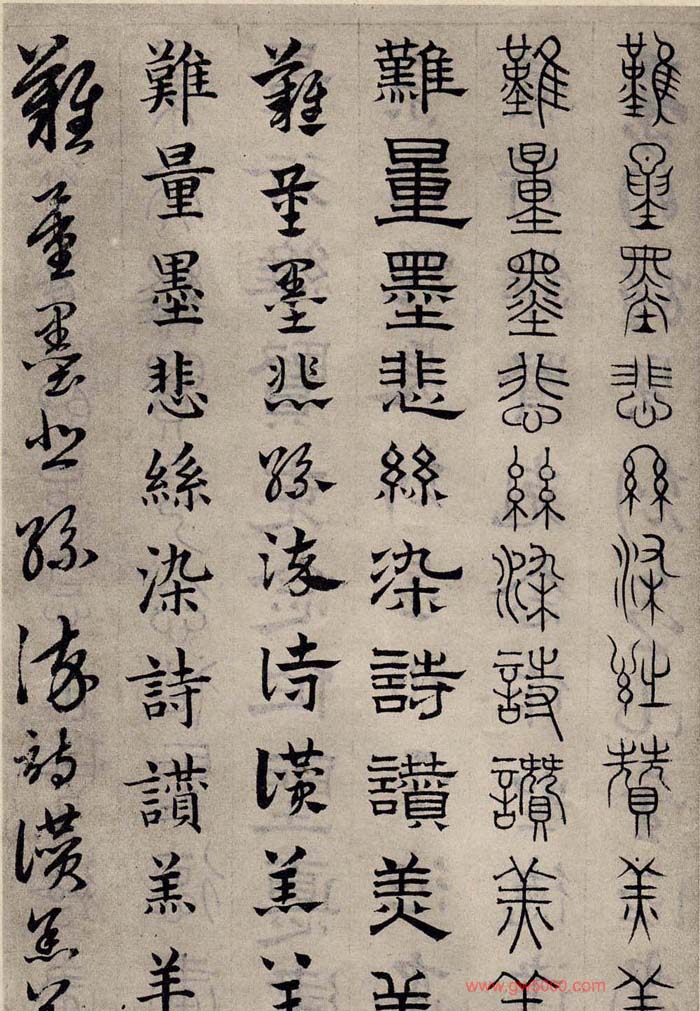 難量墨悲絲染詩贊羔羊
難量墨悲絲染詩讚羔羊
難量墨悲絲染詩讚羔羊
難量墨悲絲染詩讚羔羊
難量墨悲絲染詩讚羔羊
難量墨悲絲染詩讚羔羊